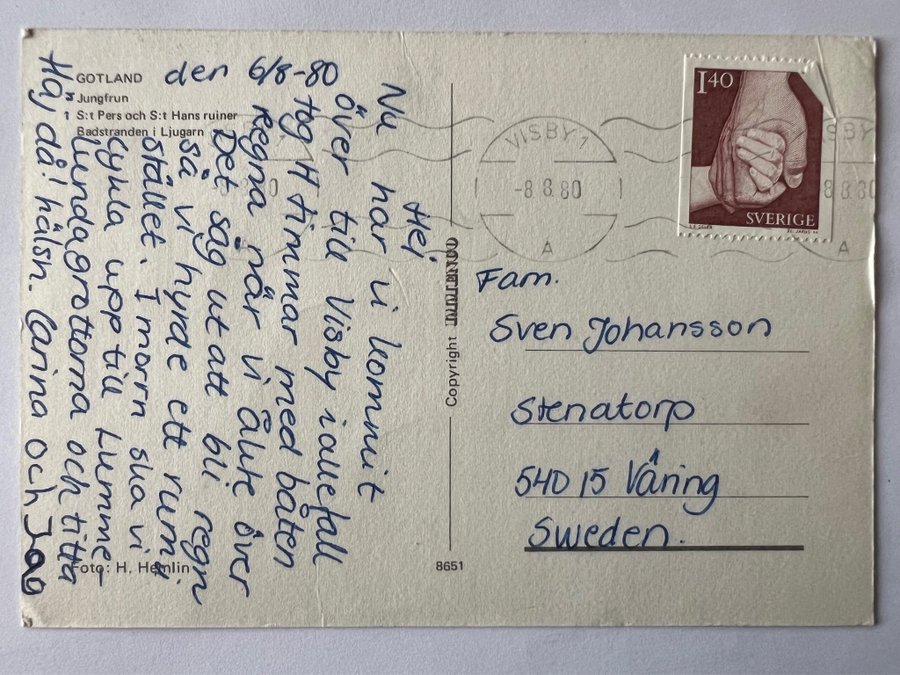 GOTLAND
Jungfrun
S:t Pers och S:t Hans ruiner
Badstranden i Ljugarn
den 6/8-80
Hej
Nu har vi kommit
över till Visby iallefall
tog 4 timmar med båten
Regna när vi åkte över
Det såg ut att bli regn
så vi hyrde ett rum i
stället. I morrn ska vi
cykla upp till Lumme-
lundagrottorna och titta
Haj då! hälsn. Carina och Jag
Foto: H. Hemlin
Copyright
8651
1 40
SVERIGE
VISBY 1
-8 8 80
A
VISBY
8 8 80
A
Fam.
Sven Johansson
Stenatorp
540 15 Våring
Sweden.